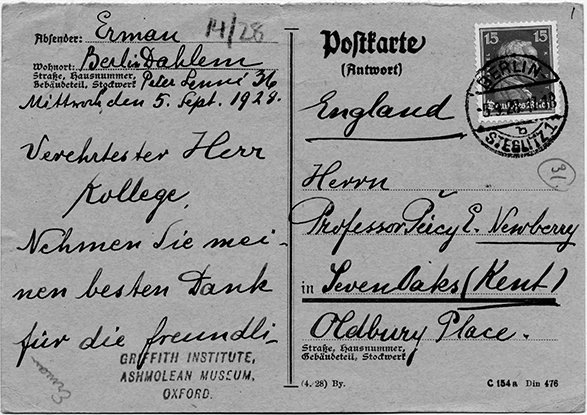 14/28
Absender: Erman
Wohnort: Berlin Dahlem
Straße, Hausnummer,
Gebäudeteil, Stockwerk Peter Lenné 36
Mittwoch, den 5. Sept. 1928.
Verehrtester Herr
Kollege,
Nehmen Sie mei-
nen besten Dank
für die freundli-
GRIFFITH INSTITUTE,
ASHMOLEAN MUSEUM,
OXFORD.
Erman
Postkarte
(Antwort)
15 15
Deutsches Reich
BERLIN-
STEGLITZ 1
a
England
31.
Herrn
Professor Percy E. Newberry
in SevenOaks (Kent)
Oldbury Place.
Straße, Hausnummer,
Gebäudeteil, Stockwerk
(4. 28) By.
C 154a Din 476